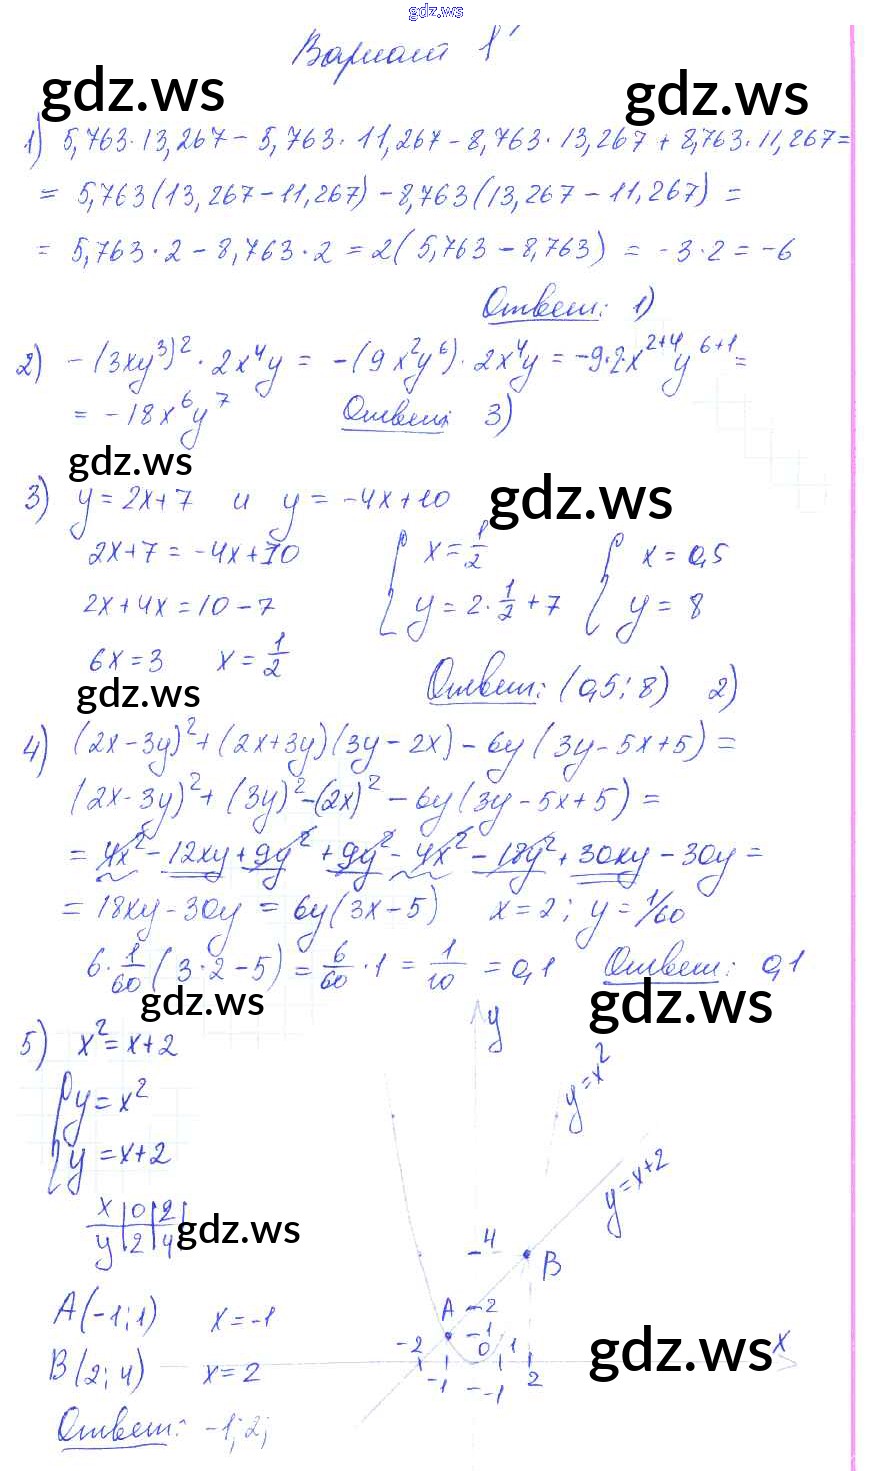 gdz.ws
Вариант 1'
gdz.ws gdz.ws
1) 5,763·13,267 - 5,763·11,267 - 8,763·13,267 + 8,763·11,267 =
= 5,763(13,267 - 11,267) - 8,763(13,267 - 11,267) =
= 5,763·2 - 8,763·2 = 2(5,763 - 8,763) = -3·2 = -6
Ответ: 1)
2) -(3xy³)²·2x⁴y = -(9x²y⁶)·2x⁴y = -9·2·x²⁺⁴y⁶⁺¹ =
= -18x⁶y⁷ Ответ: 3)
gdz.ws gdz.ws
3) y = 2x+7 и y = -4x+10
2x+7 = -4x+10 { x = 1/2 { x = 0,5
2x+4x = 10-7 y = 2·1/2+7 y = 8
6x = 3 x = 1/2
gdz.ws Ответ: (0,5; 8) 2)
4) (2x-3y)² + (2x+3y)(3y-2x) - 6y(3y-5x+5) =
(2x-3y)² + (3y)² - (2x)² - 6y(3y-5x+5) =
= 4x² - 12xy + 9y² + 9y² - 4x² - 18y² + 30xy - 30y =
= 18xy - 30y = 6y(3x-5) x = 2; y = 1/60
6·1/60(3·2-5) = 6/60·1 = 1/10 = 0,1 Ответ: 0,1
gdz.ws gdz.ws
5) x² = x+2
{ y = x²
y = x+2
x | 0 | 2
y | 2 | 4
gdz.ws
A(-1; 1) x = -1
B(2; 4) x = 2
Ответ: -1; 2;
y
y = x²
y = x+2
4
B
A 2
1
-2 0 1 x
-1 -1 2
gdz.ws